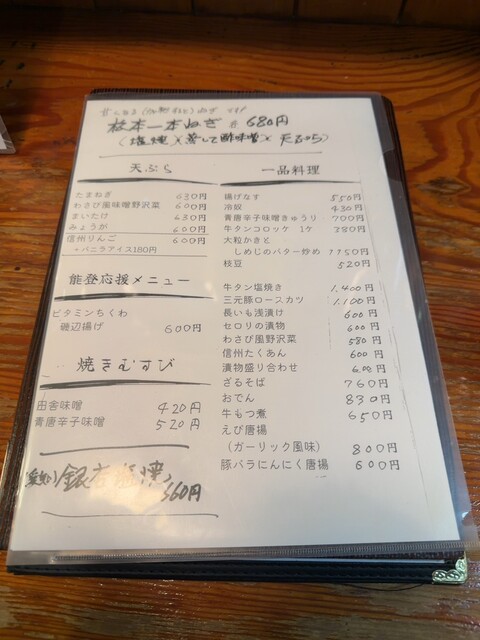 松本一本ねぎ 各680円
(塩焼)(蒸して酢味噌)(天ぷら)
天ぷら
たまねぎ 630円
わさび風味噌野沢菜 600円
まいたけ 630円
みょうが 600円
信州りんご 600円
+バニラアイス180円
能登応援メニュー
ビタミンちくわ
磯辺揚げ 600円
焼きむすび
田舎味噌 420円
青唐辛子味噌 520円
銀杏塩焼 660円
一品料理
揚げなす 550円
冷奴 430円
青唐辛子味噌きゅうり 700円
牛タンコロッケ 1ケ 380円
大粒かきと
しめじのバター炒め 1150円
枝豆 520円
牛タン塩焼き 1,400円
三元豚ロースカツ 1,100円
長いも浅漬け 600円
セロリの漬物 600円
わさび風野沢菜 580円
信州たくあん 600円
漬物盛り合わせ 円
ざるそば 760円
おでん 830円
牛もつ煮 650円
えび唐揚
(ガーリック風味) 800円
豚バラにんにく唐揚 600円